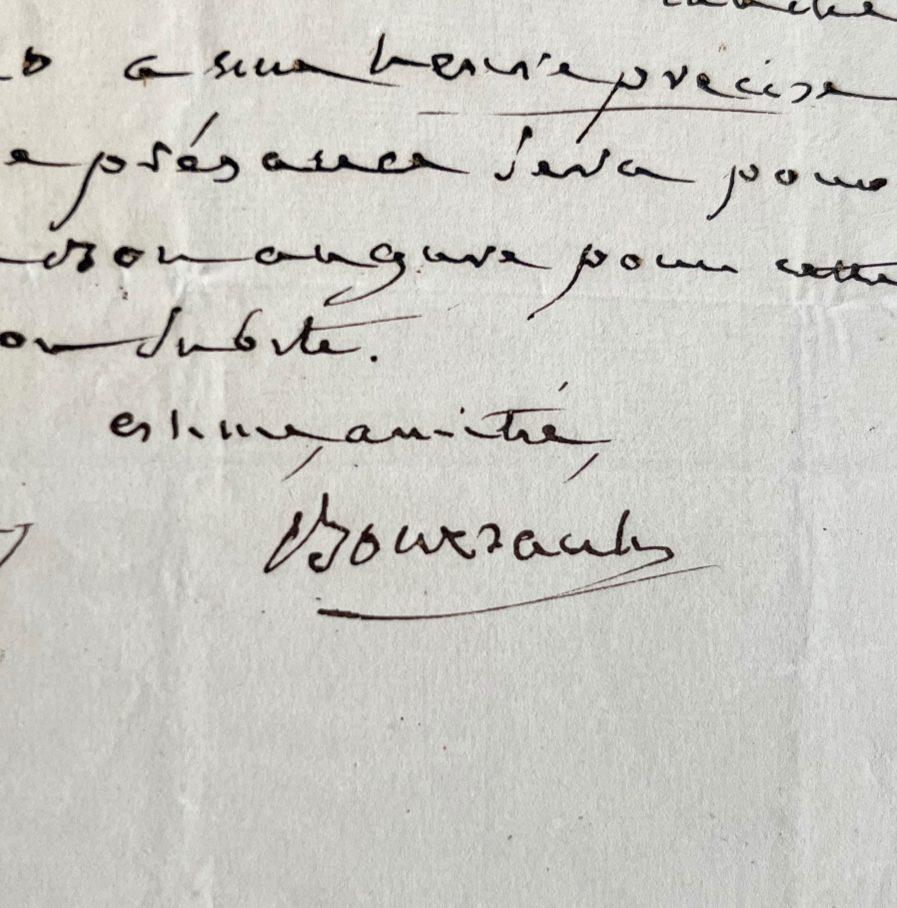 a une heure précise
présance sera pour
Bon augure pour cette
subite.
estime, amitié,
Boursault